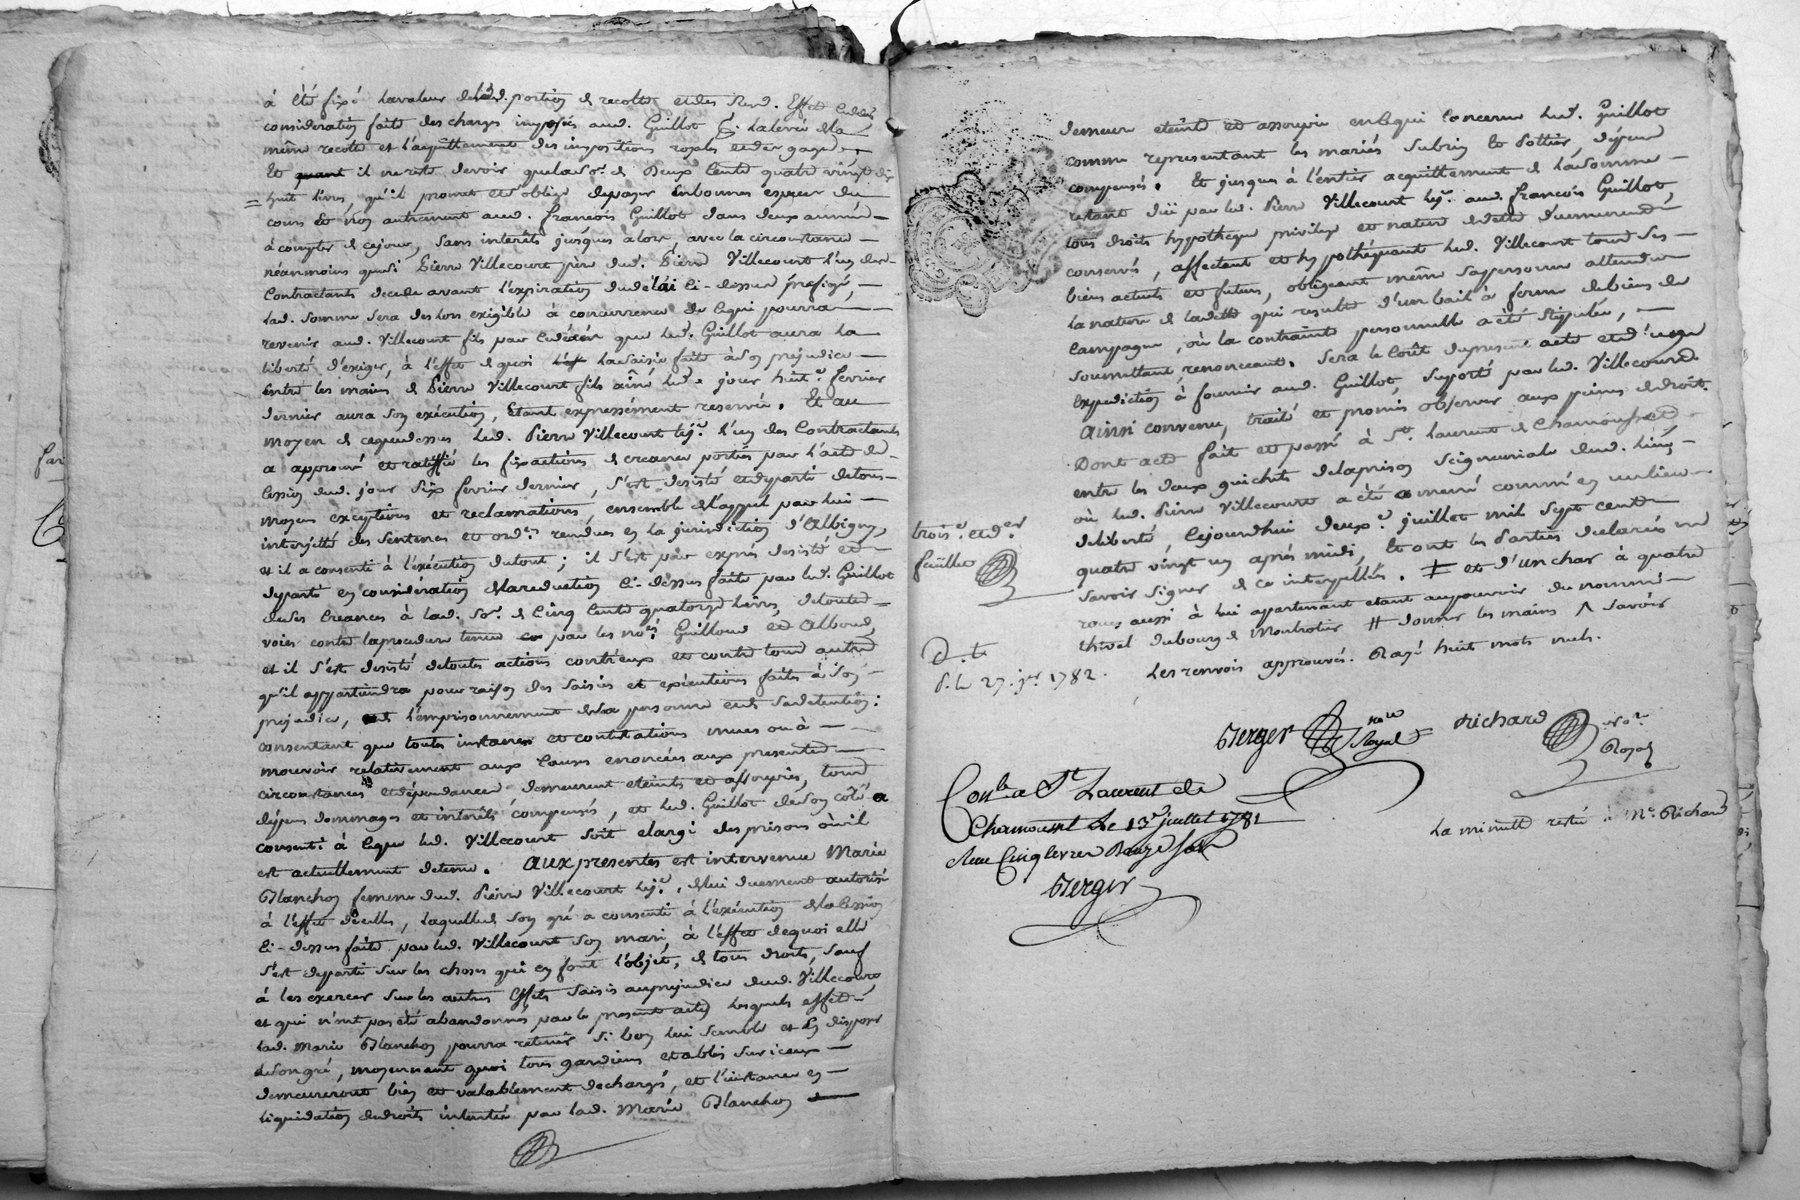 à été fixé la valeur desd. portion de recolte et des Susd. Effets cedés
consideration faite des charges imposées aud. Guillot p. la levée de la
même recolte et l'acquittement des impositions royales et des gages,
Et quant il ne reste devoir que la So.e de Deux Cents quatre vingt dix
huit livres, qu'il promet et s'oblige de payer en bonnes especes du
cours Et non autrement aud. françois Guillot dans deux années
à compter de cejour, sans interêts jusques alors, avec la circonstance
néanmoins que si Pierre Villecourt père dud. Pierre Villecourt l'un des
Contractants decede avant l'expiration dudélai Ci-dessus préfixé,
lad. Somme sera des lors exigible à concurrence de Cequi pourra
revenir aud. Villecourt fils par ledécés que led. Guillot aura la
liberté d'exiger, à l'effet de quoi la saisie faite à son préjudice
Entre les mains de Pierre Villecourt fils aîné led. jour huit.e fevrier
dernier aura son exécution, Etant expressément reservée. Et au
moyen de cequedessus led. Pierre Villecourt lej.e l'un des Contractants
a approuvé et ratiffié les fixations de creances portées par l'acte de
Cession dud. jour Six fevrier dernier, s'est desisté et departi de tous
moyens exceptions et reclamations, ensemble de l'appel par lui
interjetté des Sentences et ord.es rendues en la jurisdiction d'Albigny,
et il a consenti à l'exécution dutout; il s'est par exprès desisté et
departi en considération de la reduction Ci-dessus faite par led. Guillot
de ses Creances à lad. So.e de Cinq Cents quatorze livres, de toutes
voies contre la procedure tenue par les no.es Guilloud et Alboud,
et il s'est desisté detoutes actions contr'eux et contre tous autres
qu'il appartiendra pour raison des saisies et exécutions faites à son
prejudice, de l'emprisonnement de sa personne et de sa detention:
consentant que toutes instances et contestations mues ou à
mouvoir relativement aux Causes enoncées aux presentes
circonstances et dépendances demeurent eteints et assoupies, tous
dépens dommages et interêts compensés, et led. Guillot de son côté a
consenti à ceque led. Villecourt soit elargi des prisons où il
est actuellement detenu. Aux presentes est intervenue Marie
Blanchon femme dud. Pierre Villecourt lej.e, de lui duement autorisée
à l'effet d'icelles, laquelle de son gré a consenti à l'exécution de la Cession
Ci-dessus faite par led. Villecourt son mari, à l'effet dequoi elle
s'est departi sur les choses qui en font l'objet, de tous droits, sauf
à les exercer sur les autres Effets Saisis au prejudice dud. Villecourt
et qui n'ont pas été abandonnés par le present acte, lesquels effets
lad. Marie Blanchon pourra retenir Si bon lui semble et En disposer
de son gré, moyennant quoi tous gardiens etablis sur iceux
demeureront bien et valablement dechargés, et l'instance en
liquidation de droits intentée par lad. Marie Blanchon
demeure eteinte et assoupie en Cequi concerne led. Guillot
comme representant les mariés Subrin Et Pottier, dépens
compensés. Et jusques à l'entier acquittement de la Somme
restant düe par led. Pierre Villecourt lej.e aud. françois Guillot,
tous droits hypotheque privilege et nature de dette demeurent
conservés, affectant et hypothéquant led. Villecourt tous Ses
biens actuels et futurs, obligeant même sa personne attendu
la nature de la dette qui resulte d'un bail à ferme de biens de
Campagne, où la contrainte personnelle a été stipulée,
soumettant renonceant. Sera le Coût dupresent acte et d'une
Expedition à fournir aud. Guillot, suporté par led. Villecourt.
Ainsi convenu, traité et promis observer aux peines de droit.
Dont acte fait et passé à St. Laurent de Chamousset
entre les deux guichets de la prison seigneuriale dud. lieu
où led. Pierre Villecourt a été amené comme en un lieu
de liberté, Cejourdhui deux.e juillet mil sept cent
quatre vingt un après midi, Et ont les Parties declarées ne
savoir signer de ce interpellées. ‡ et d'un char à quatre
roues aussi à lui appartenant etant aupouvoir du nommé
thivel du bourg de Montrotier # donner les mains ^ Savoir
Les renvois approuvés. Rayé huit mots nuls.
trois.e et der
feüillet
D. te
27. 1782.
Berger no.re Royal
Richard No.re Royal
Con.lé à St Laurent de
Chamousset Le 13e juillet 1781
Reçu Cinq livres
Berger
La minutte restée à Me. Richard